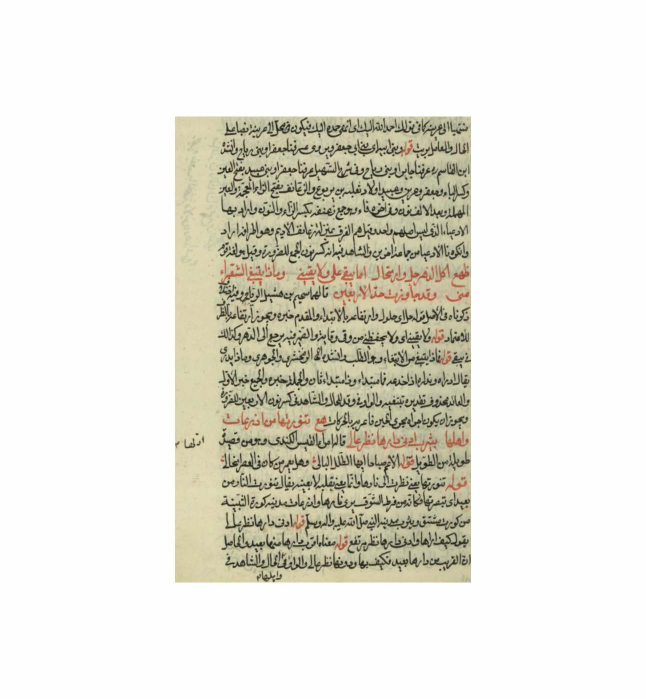 منتميا الى عرينة كما في قولك احمد الله اليك اي انهى حمده اليك فيكون في محل
الحال والعامل برئت قوله وبني ابيه اي بني ابي جعفر ويروى عرفنا جعفرا وبني رياح وانشد
ابن القاسم عرفنا جعفرا وبني رياح وفي شرح التسهيل عرفنا جعفرا وبني عبيد بفتح العين
وكسر الباء وجعفر وعرين وعبيد اولاد ثعلبة بن يربوع والزعانف بفتح الزاء المعجمة والعين
المهملة وبعد الالف نون وفي اخره فاء وهو جمع زعنفة بكسر الزاء والنون واراد بها
الادعياء الذين ليس اصلهم واحد وقيل هم الفرق بمنزلة زعانف الاديم وهو اطرافه اراد
وانكرنا الادعياء من جماعة اخرين والشاهد فيه انه كسر نون الجمع للضرورة
ظهع اكل الدهر حل وارتحال اما يبقي علي ولا يقيني وماذا يبتغي الشعراء
مني وقد جاوزت حد الاربعين قالهما سحيم بن وثيل الرياحي
ذكرناه في الاصل قوله حل اي حلول وارتفاعه بالابتداء والمقدم خبره ويجوز ارتفاعه بالظرف
للاعتماد قوله ولا يقيني اي ولا يحفظني من وقى وقاية والضمير فيه يرجع الى الدهر وكذلك
في يبقي قوله ماذا يبتغي من الابتغاء وهو الطلب وانشده الزمخشري والجوهري وماذا يدري
يقال ادراه وتدراه اذا خدعه فما مبتداء وذا مبتداء ثان والجملة خبره والجميع خبر الاول
والعائد محذوف تقديره يبتغيه والواو في وقد للحال والشاهد في كسر نون الاربعين للضرورة
ويجوز ان يكون اجراه مجرى الحين فاعربه بالحركات هع تنورتها من اذرعات
واهلها بيثرب ادنى دارها نظر عالي قاله امرؤ القيس الكندي وهو من قصيدة
طويلة من الطويل قوله الا عم صباحا ايها الطلل البالي وهل يعمن من كان في العصر الخالي
قوله تنورتها يعني نظرت الى نارها وانما يعني بقلبه لا بعينه يقال تنورت النار من
بعيد اي تبصرتها فكانه من فرط الشوق يرى نارها واذرعات مدينة كورة البثنية
من كورة دمشق ويثرب مدينة النبي صلى الله عليه واله وسلم قوله ادنى دارها نظر عال
يقول كيف اراها وادنى دارها نظر مرتفع قوله معناه اقرب دارها منها بعيد والحاصل
ان القريب من دارها بعيد فكيف بها ودونها نظر عالي والواو في للحال والشاهد في